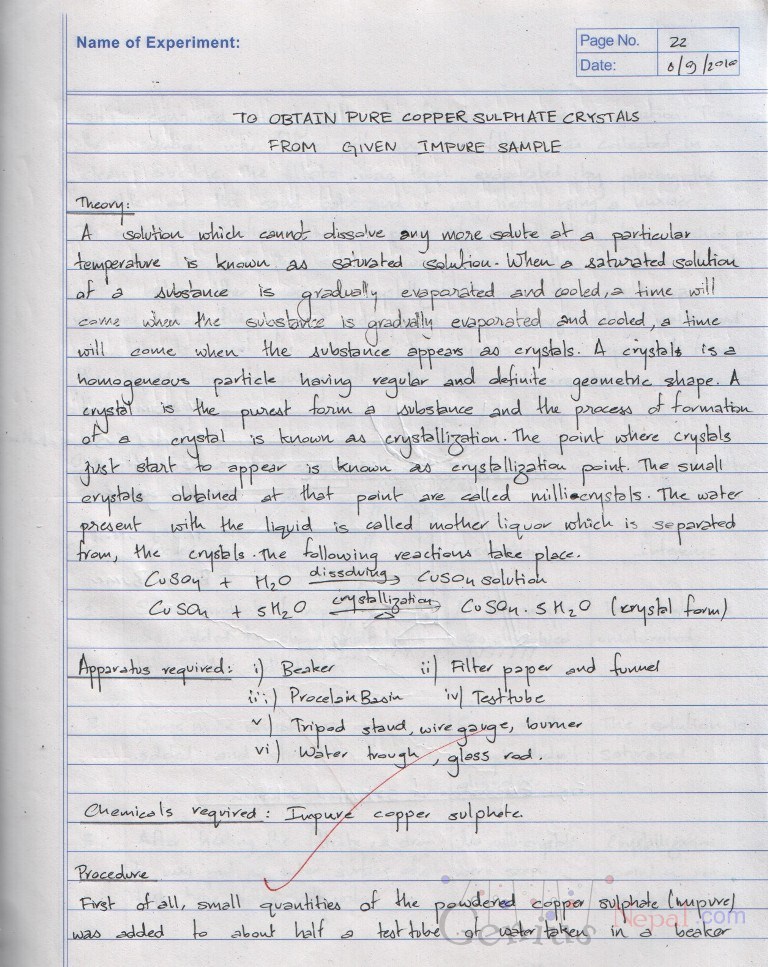 Name of Experiment:
Page No. 22
Date: 8/9/2010
TO OBTAIN PURE COPPER SULPHATE CRYSTALS
FROM GIVEN IMPURE SAMPLE
Theory:
A solution which cannot dissolve any more solute at a particular
temperature is known as saturated solution. When a saturated solution
of a substance is gradually evaporated and cooled, a time will
come when the substance is gradually evaporated and cooled, a time
will come when the substance appears as crystals. A crystals is a
homogeneous particle having regular and definite geometric shape. A
crystal is the purest form a substance and the process of formation
of a crystal is known as crystallization. The point where crystals
just start to appear is known as crystallization point. The small
crystals obtained at that point are called millicrystals. The water
present with the liquid is called mother liquor which is separated
from, the crystals. The following reactions take place.
CuSO4 + H2O dissolving → CuSO4 solution
CuSO4 + 5H2O crystallization → CuSO4.5H2O (crystal form)
Apparatus required: i) Beaker ii) Filter paper and funnel
iii) Procelain Basin iv) Testtube
v) Tripod stand, wire gauge, burner
vi) Water trough, glass rod.
Chemicals required: Impure copper sulphate.
Procedure
First of all, small quantities of the powdered copper sulphate (impure)
was added to about half a test tube of water taken in a beaker
Genius Nepal.com